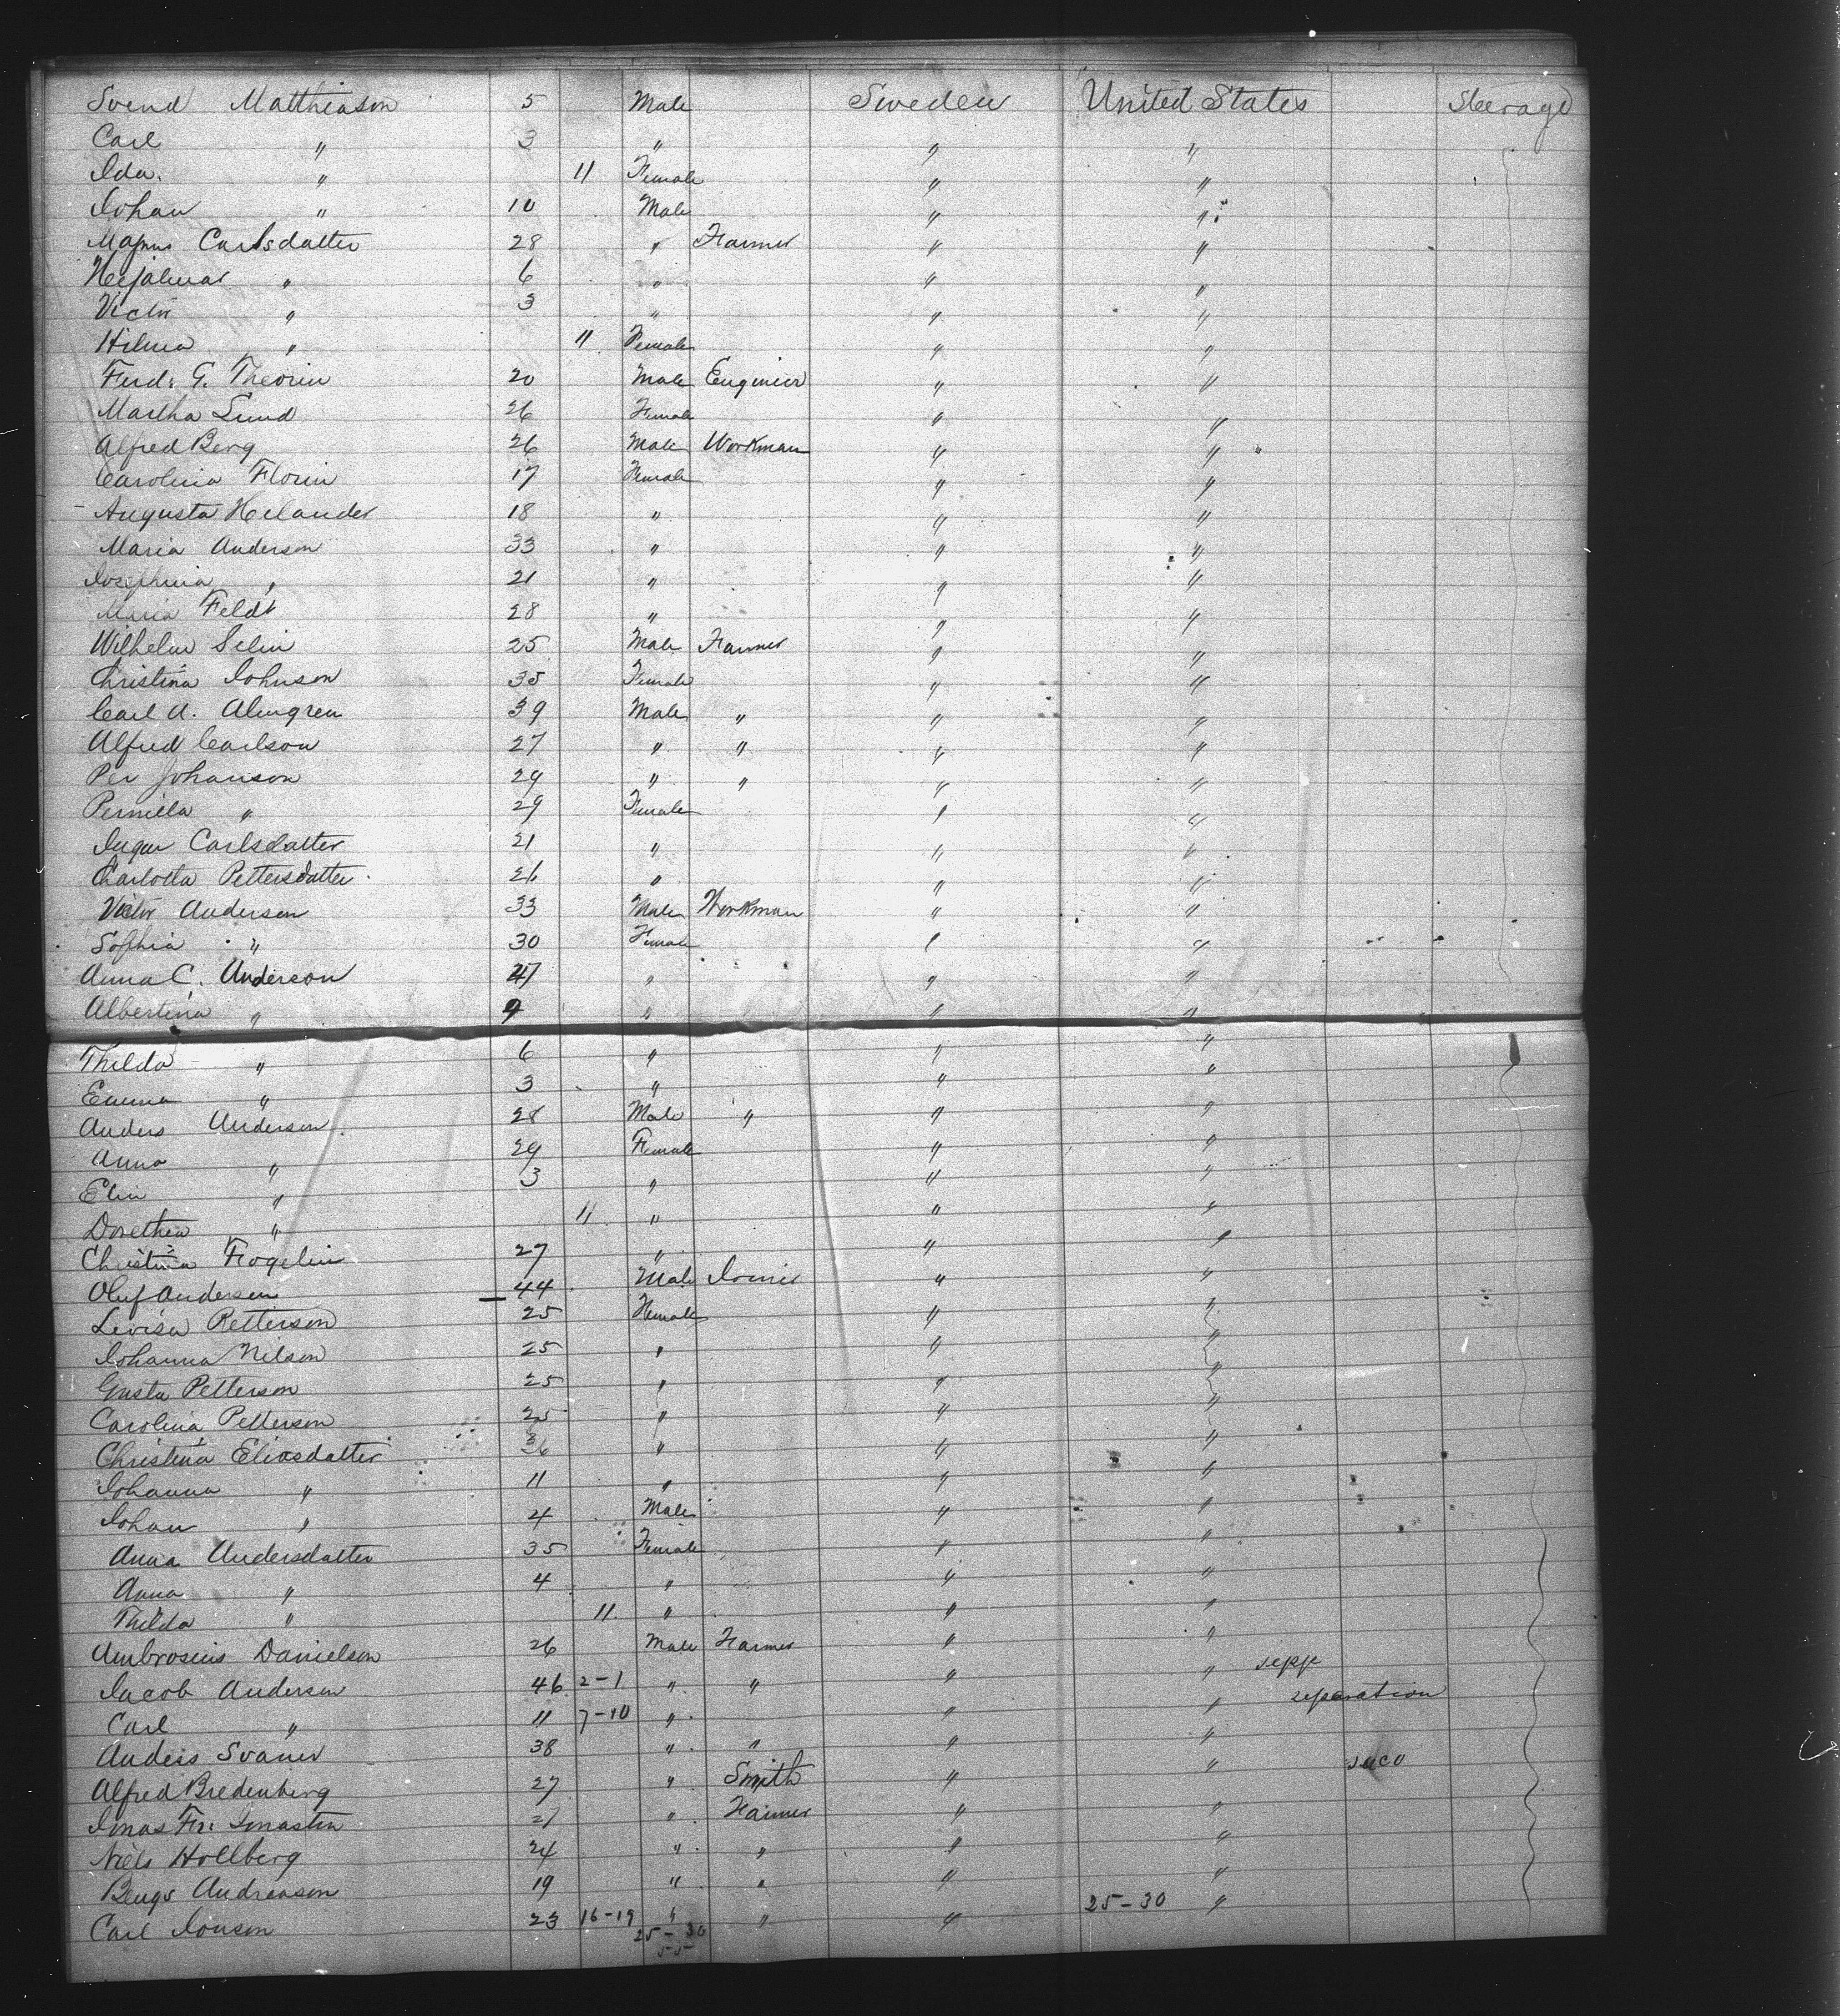 Svend Matthiason 5 Male Sweden United States Steerage
Carl " 3 " " "
Ida " 11 Female " "
Johan " 10 Male " "
Magnus Carlsdatter 28 " Farmer " "
Hejalmar " 6 " " "
Victor " 3 " " "
Hilma " 11 Female " "
Ferd. G. Theorin 20 Male Engineer " "
Martha Lund 26 Female " "
Alfred Berg 26 Male Workman " "
Carolina Florin 17 Female " "
Augusta Helander 18 " " "
Maria Anderson 33 " " "
Josephina " 21 " " "
Maria Feldt 28 " " "
Wilhelm Selin 25 Male Farmer " "
Christina Johnson 35 Female " "
Carl A. Almgren 39 Male " " "
Alfred Carlson 27 " " " "
Per Johanson 29 " " " "
Pernilla " 29 Female " "
Ingar Carlsdatter 21 " " "
Charlotta Pettersdatter 26 " " "
Victor Anderson 33 Male Workman " "
Sophia " 30 Female " "
Anna C. Anderson 47 " " "
Albertina " 9 " " "
Thilda " 6 " " "
Emma " 3 " " "
Anders Anderson 28 Male " " "
Anna " 29 Female " "
Elin " 3 " " "
Dorethea " 11 " " "
Christina Frogelin 27 " " "
Oluf Anderson 44 Male Joiner " "
Lovisa Petterson 25 Female " "
Johanna Nilson 25 " " "
Gusta Petterson 25 " " "
Carolina Petterson 25 " " "
Christina Eliasdatter 36 " " "
Johanna " 11 " " "
Johan " 4 Male " "
Anna Andersdatter 35 Female " "
Anna " 4 " " "
Thilda " 11 " " "
Ambrosius Danielson 26 Male Farmer " "
Jacob Anderson 46 2-1 " " " "
Carl " 11 7-10 " " " separation
Anders Svaner 38 " " " "
Alfred Bredenberg 27 " Smith " "
Jonas Fr. 21 " Farmer " "
Niels Hollberg 24 " " " "
Bengt Andreason 19 " " " "
Carl Jonson 23 16-19 " " " 25-30 "
25-30
55